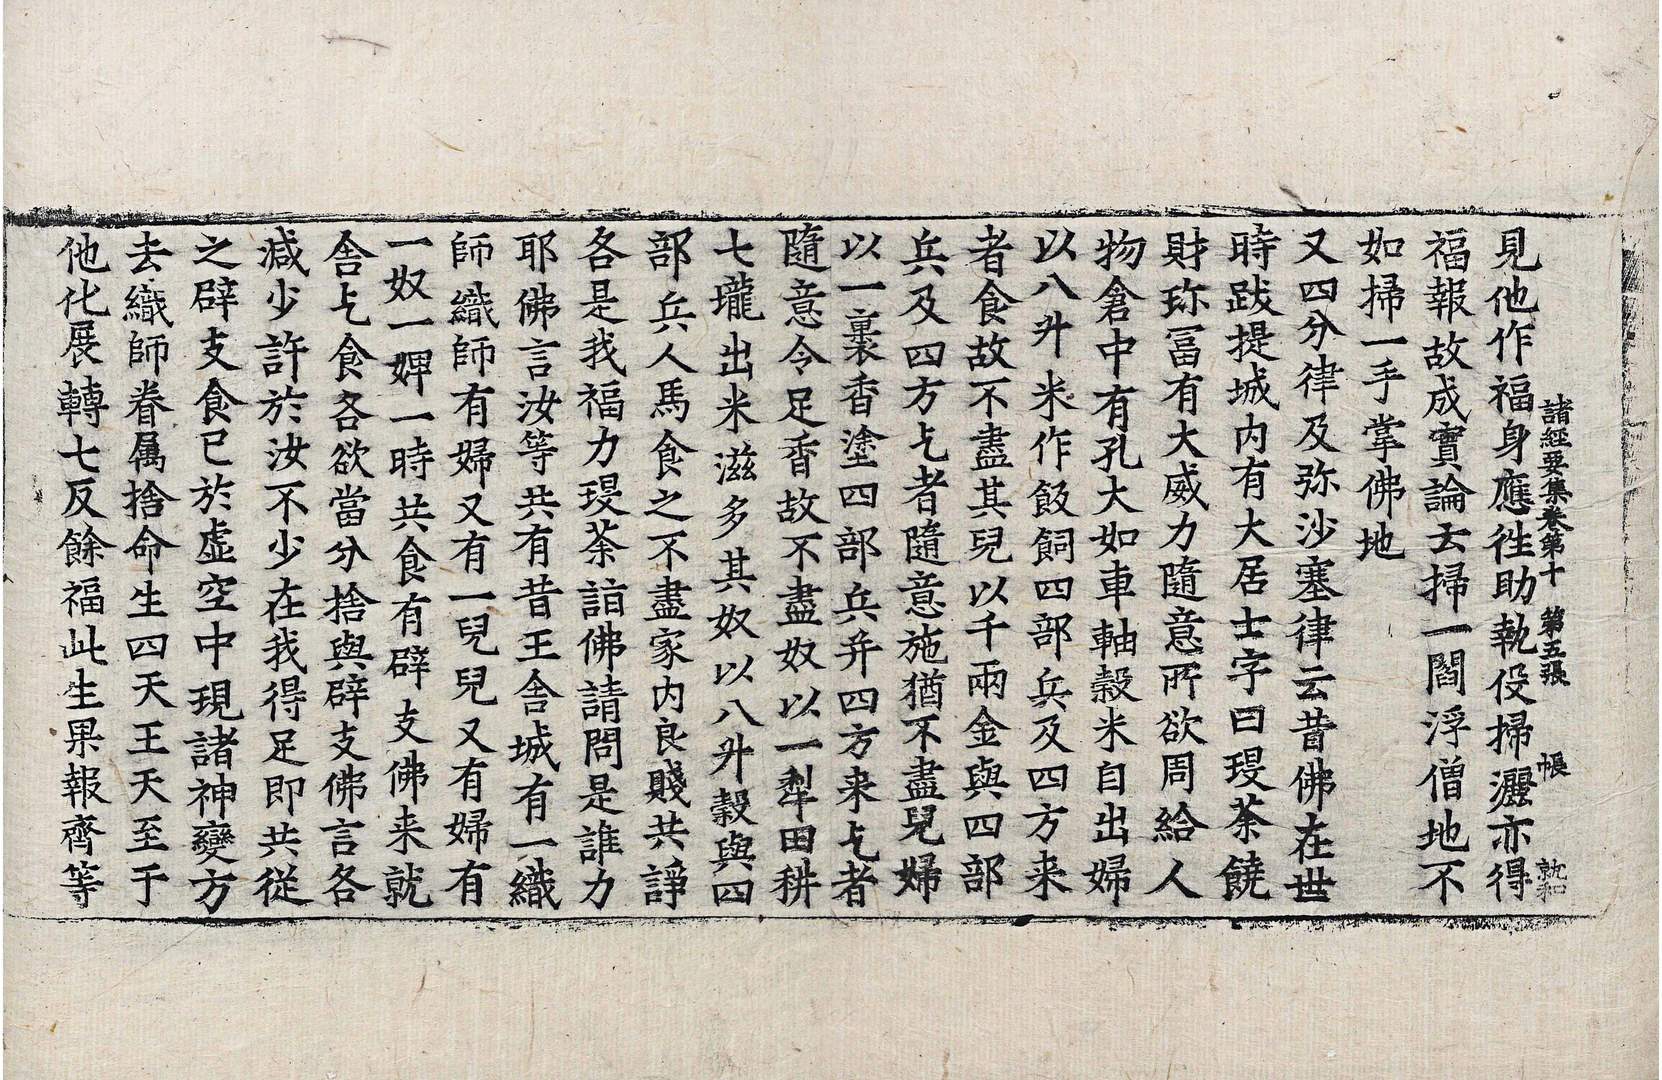 諸經要集卷第十 第五張 帳 就和
見他作福身應徃助執役掃灑亦得
福報故成實論云掃一閻浮僧地不
如掃一手掌佛地
又四分律及弥沙塞律云昔佛在世
時跋提城内有大居士字曰琝荼饒
財珎冨有大威力隨意所欲周給人
物倉中有孔大如車軸穀米自出婦
以八升米作飯飼四部兵及四方来
者食故不盡其兒以千兩金與四部
兵及四方乞者隨意施猶不盡兒婦
以一裹香塗四部兵并四方来乞者
隨意令足香故不盡奴以一犁田耕
七壠出米滋多其奴以八升穀與四
部兵人馬食之不盡家内良賤共諍
各是我福力琝荼詣佛請問是誰力
耶佛言汝等共有昔王舍城有一織
師織師有婦又有一兒兒又有婦有
一奴一婢一時共食有辟支佛来就
舍乞食各欲當分捨與辟支佛言各
減少許於汝不少在我得足即共從
之辟支食已於虛空中現諸神變方
去織師眷属捨命生四天王天至于
他化展轉七反餘福此生果報齊等